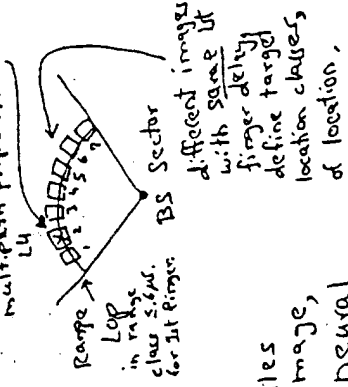 multipath
LH
1 2 3 4 5 6 7
Range
LOP
in range
class ≤.6 µs.
for 1st finger.
BS Sector
different images
with same 1st
finger delay
define target
location classes,
of location.
mage,
neural